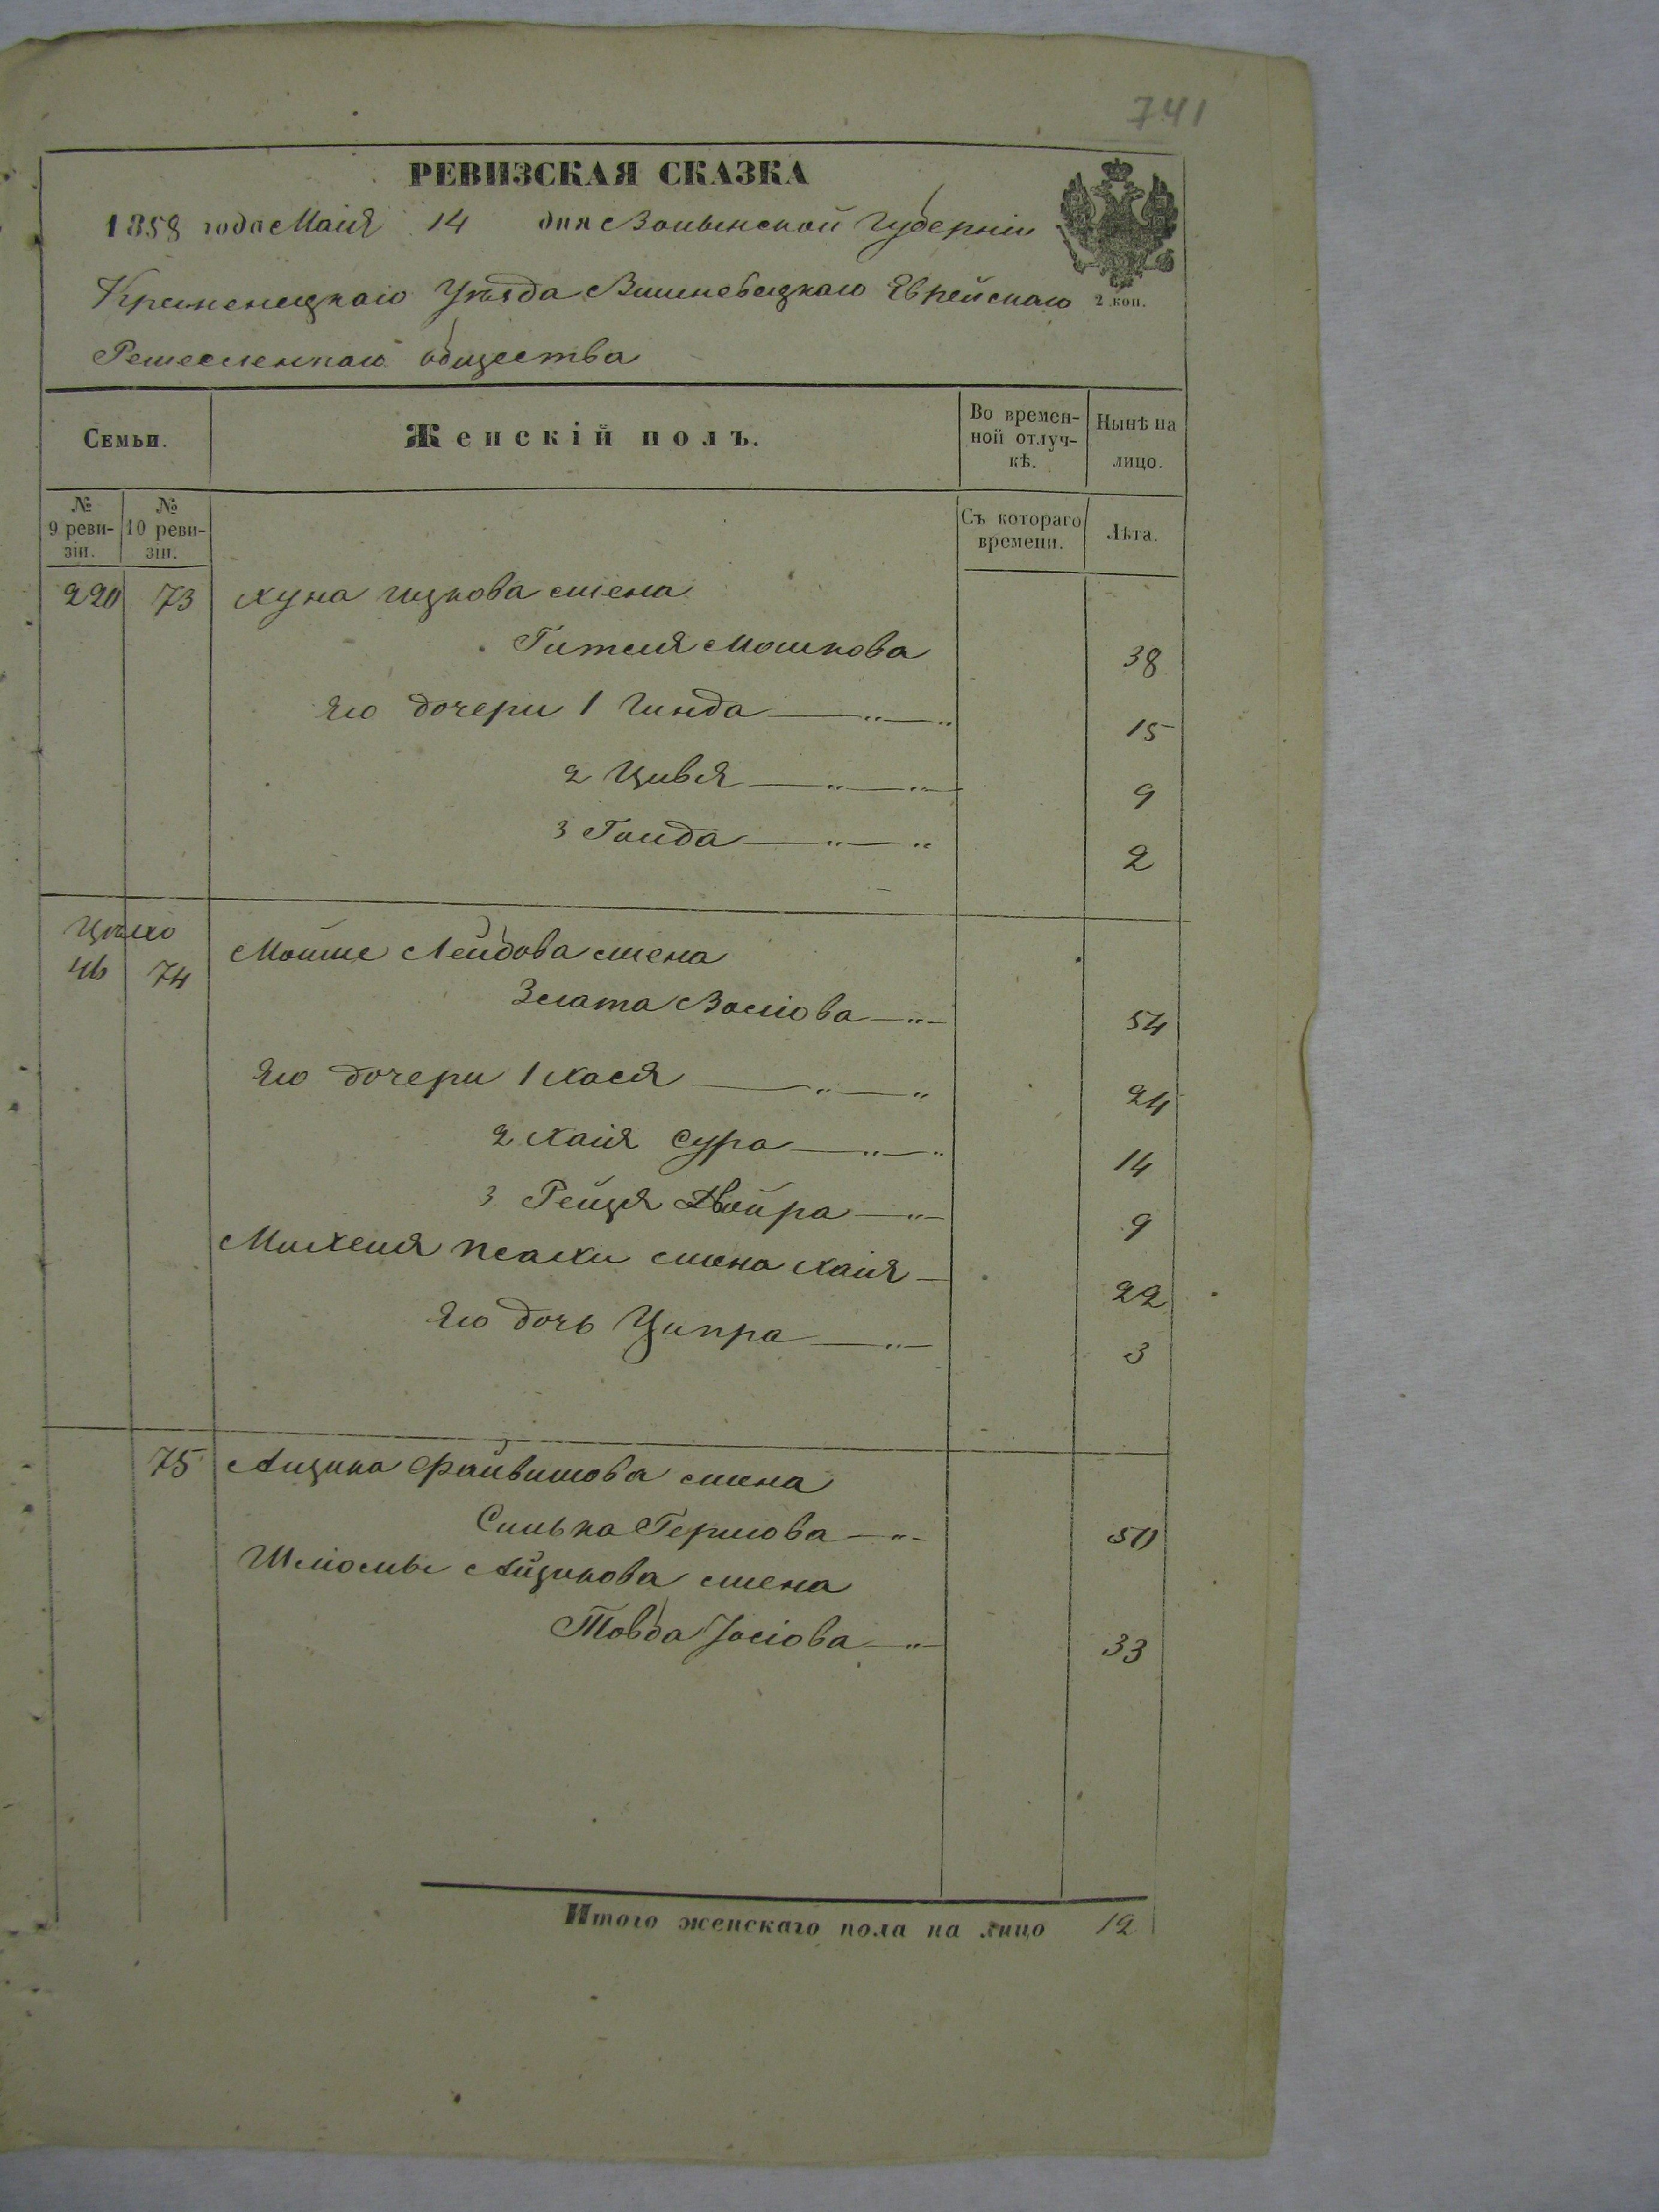 741
РЕВИЗСКАЯ СКАЗКА
1858 года Маія 14 дня Волынской Губерніи
Кременецкаго Уѣзда Вишневецкаго Еврейскаго
2 коп.
Ремесленнаго общества
Семьи.
Женскій полъ.
Во времен-
ной отлуч-
кѣ.
Нынѣ на
лицо.
№
9 реви-
зіи.
№
10 реви-
зіи.
Съ котораго
времени.
Лѣта.
220 73 Хуна Ицкова жена
Гителя Мошкова 38
Его дочери 1 Гинда —„—„ 15
2 Цивя —„—„— 9
3 Голда —„—„ 2
Цехо
46 74 Мойше Лейбова жена
Злата Волфова —„— 54
Его дочери 1 Хася —„—„ 24
2 Хаія Сура —„—„ 14
3 Рейзя Двойра —„— 9
Михеля жена Хаія — 22
Его дочь Ципра —„— 3
75 Айзика Файвишова жена
Гершова —„- 50
Шліомы Айзикова жена
Товба Іосіова —„— 33
Итого женскаго пола на лицо 12